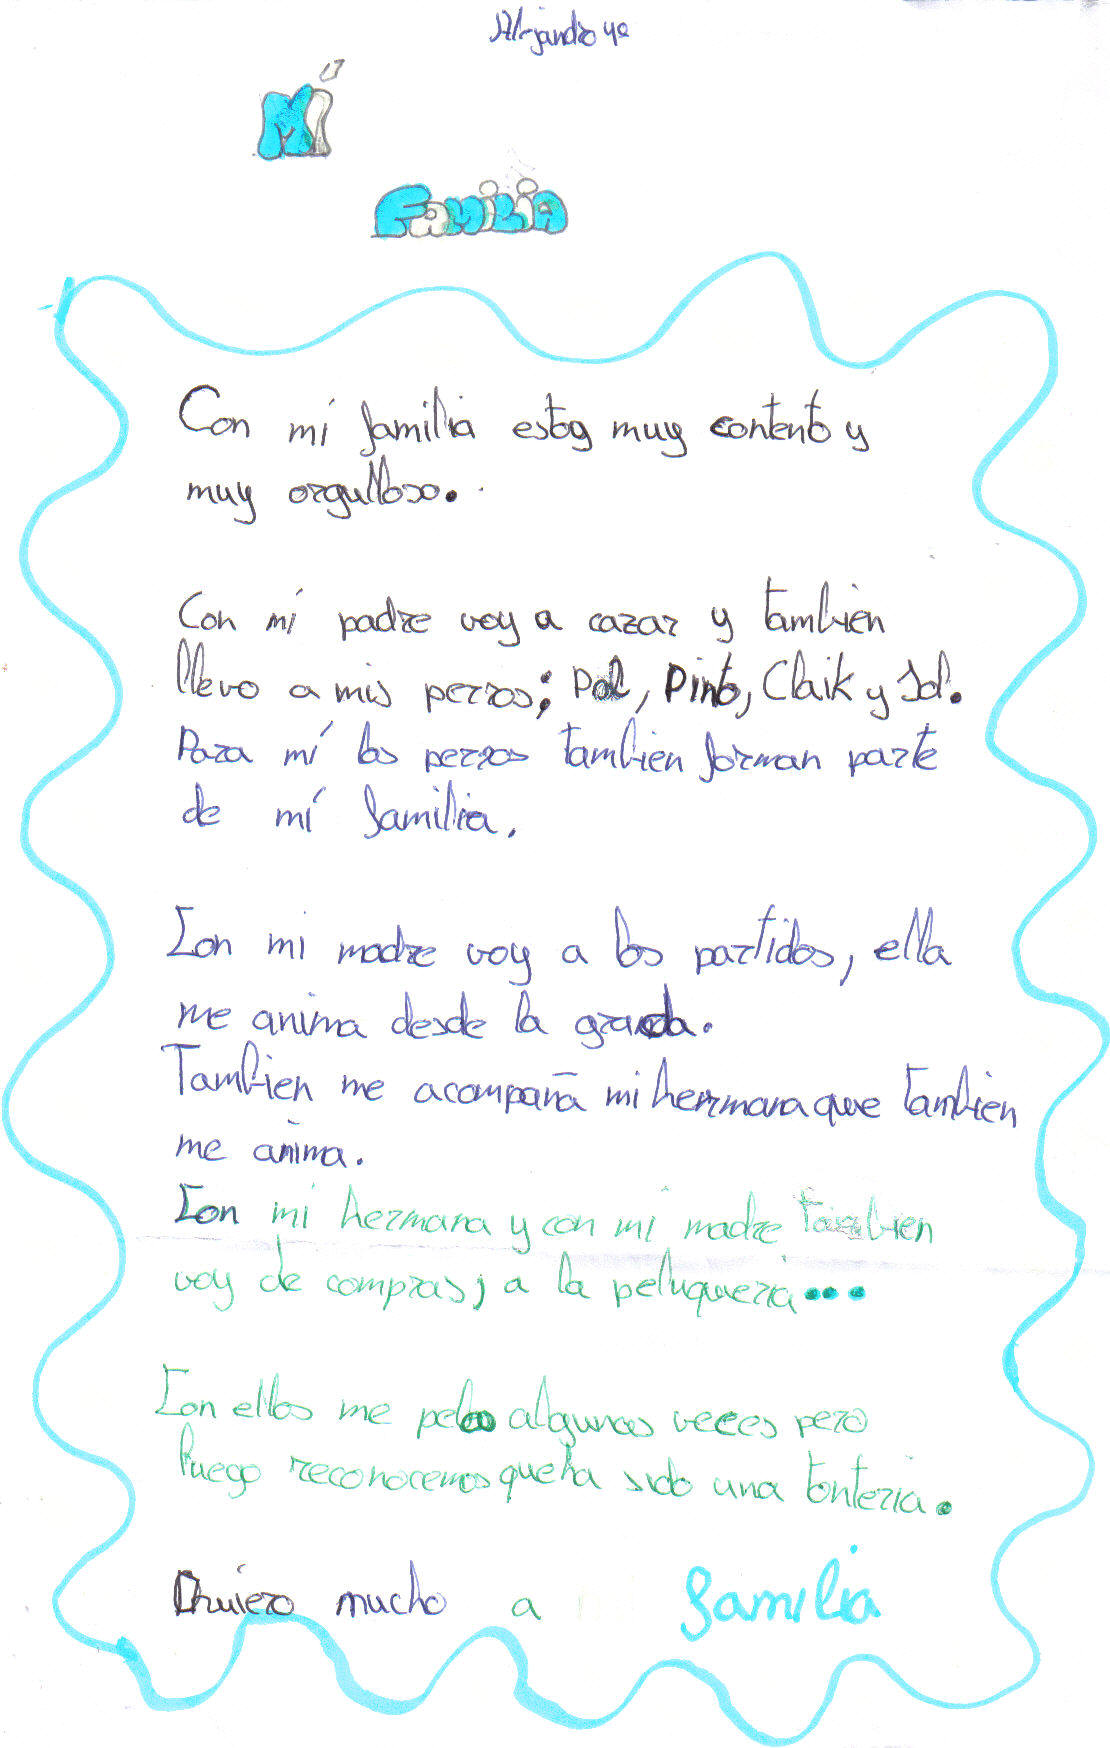 Alejandro 4º
MÍ
FAMILIA
Con mí familia estoy muy contento y
muy orgulloso.
Con mí padre voy a cazar y tambien
llevo a mis perros; Pol, Pinto, Claik y Sol.
Para mí los perros tambien forman parte
de mí familia.
Con mi madre voy a los partidos, ella
me anima desde la grada.
Tambien me acompaña mi hermana que tambien
me anima.
Con mi hermana y con mi madre tambien
voy de compras, a la peluqueria...
Con ellos me peleo algunas veces pero
luego reconocemos que ha sido una tonteria.
Quiero mucho a familia